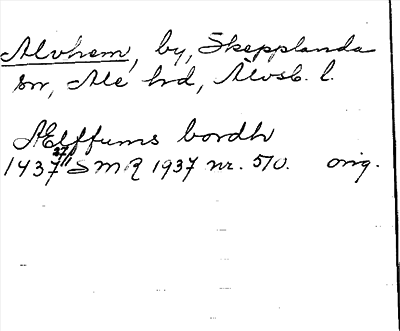 Alvhem, by, Skepplanda
sn, Ale hd, Älvsb. l.
Ælffums bordh
1437 27/11 SMR 1937 nr. 510. orig.